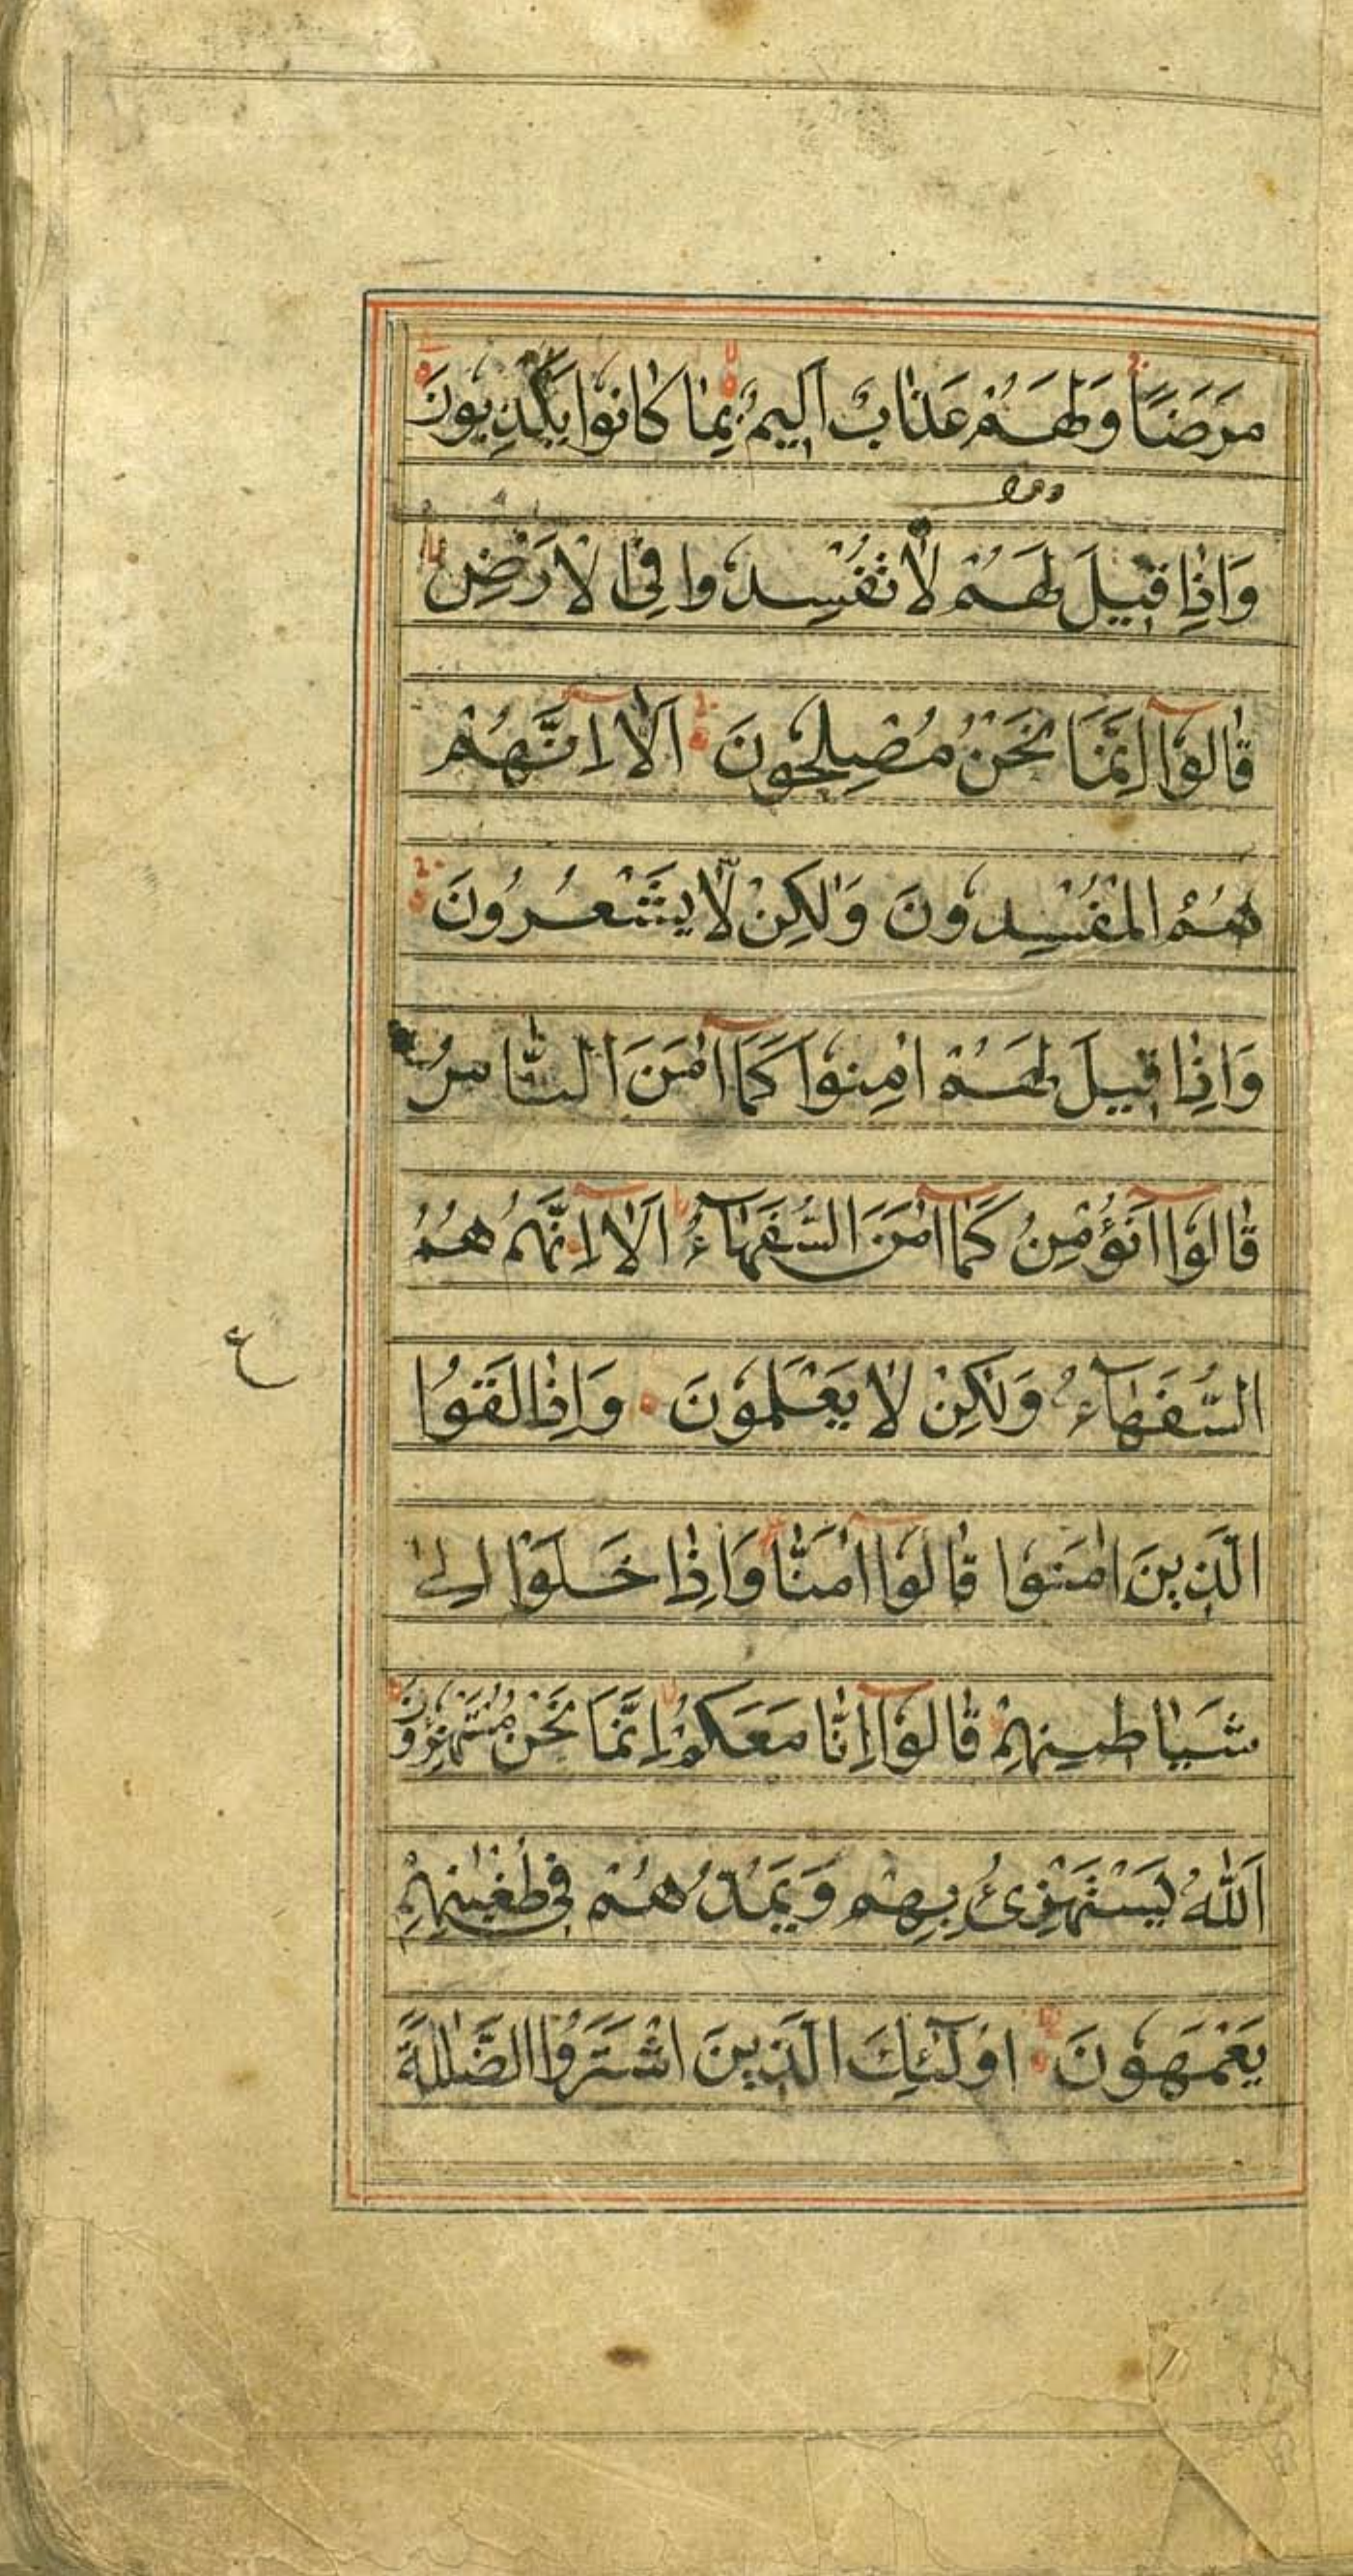 مَرَضًا وَلَهُمْ عَذَابٌ اَلِيْمٌ بِمَا كَانُوْا يَكْذِبُوْنَ
وَاِذَا قِيْلَ لَهُمْ لَا تُفْسِدُوْا فِى الْاَرْضِ
قَالُوْٓا اِنَّمَا نَحْنُ مُصْلِحُوْنَ اَلَآ اِنَّهُمْ
هُمُ الْمُفْسِدُوْنَ وَلٰكِنْ لَّا يَشْعُرُوْنَ
وَاِذَا قِيْلَ لَهُمْ اٰمِنُوْا كَمَآ اٰمَنَ النَّاسُ
قَالُوْٓا اَنُؤْمِنُ كَمَآ اٰمَنَ السُّفَهَآءُ اَلَآ اِنَّهُمْ هُمُ
السُّفَهَآءُ وَلٰكِنْ لَا يَعْلَمُوْنَ وَاِذَا لَقُوا
الَّذِيْنَ اٰمَنُوْا قَالُوْٓا اٰمَنَّا وَاِذَا خَلَوْا اِلٰى
شَيَاطِيْنِهِمْ قَالُوْٓا اِنَّا مَعَكُمْ اِنَّمَا نَحْنُ مُسْتَهْزِءُوْنَ
اَللّٰهُ يَسْتَهْزِئُ بِهِمْ وَيَمُدُّهُمْ فِى طُغْيٰنِهِمْ
يَعْمَهُوْنَ اُولٰٓئِكَ الَّذِيْنَ اشْتَرَوُا الضَّلٰلَةَ
ع